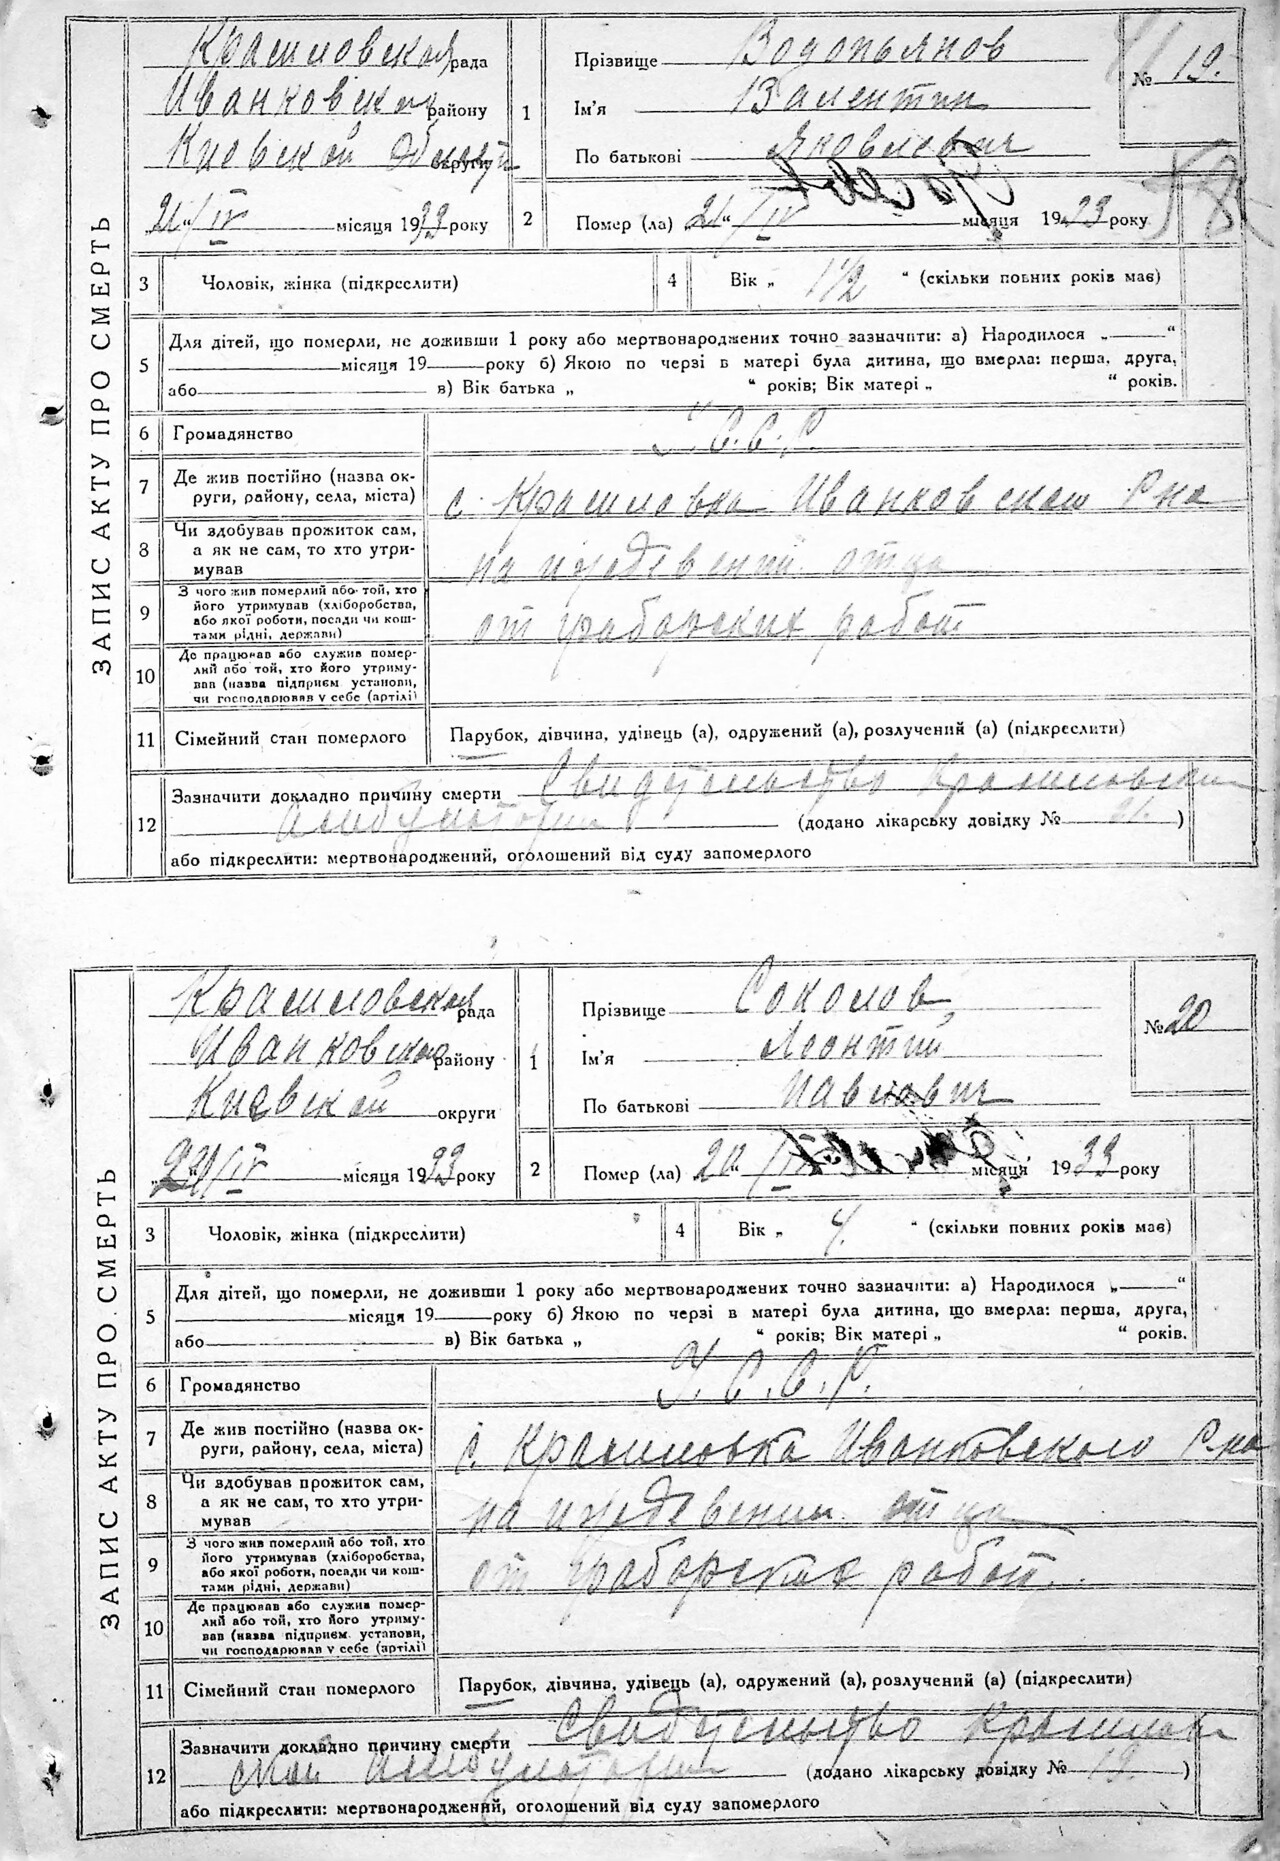 ЗАПИС АКТУ ПРО СМЕРТЬ
Красиловская рада
Иванковского району
Киевской области округи
21/IV місяця 1933 року
1
Прізвище Водопьянов
Ім'я Валентин
По батькові Яковлевич
№ 19.
2
Помер (ла) 21 „ IV місяця 1933 року
3
Чоловік, жінка (підкреслити)
4
Вік „ 1 1/2 “ (скільки повних років має)
5
Для дітей, що померли, не доживши 1 року або мертвонароджених точно зазначити: а) Народилося „ “
місяця 19 року б) Якою по черзі в матері була дитина, що вмерла: перша, друга,
або в) Вік батька „ “ років; Вік матері „ “ років.
6
Громадянство
У.С.С.Р.
7
Де жив постійно (назва ок-
руги, району, села, міста)
с. Красиловка Иванковского Р-на
8
Чи здобував прожиток сам,
а як не сам, то хто утри-
мував
на иждевении отца
9
З чого жив померлий або той, хто
його утримував (хліборобства,
або якої роботи, посади чи кош-
тами рідні, держави)
от граборских работ
10
Де працював або служив помер-
лий або той, хто його утриму-
вав (назва підприєм установи,
чи господарював у себе (артілі)
11
Сімейний стан померлого
Парубок, дівчина, удівець (а), одружений (а), розлучений (а) (підкреслити)
12
Зазначити докладно причину смерти Свидетельство Красиловской
Амбулатории (додано лікарську довідку № 21. )
або підкреслити: мертвонароджений, оголошений від суду запомерлого
ЗАПИС АКТУ ПРО СМЕРТЬ
Красиловская рада
Иванковского району
Киевской округи
/IV місяця 1933 року
1
Прізвище Соколов
Ім'я Леонтий
По батькові Павлович
№ 20
2
Помер (ла) 20 “ IV місяця 1933 року
3
Чоловік, жінка (підкреслити)
4
Вік „ 4. “ (скільки повних років має)
5
Для дітей, що померли, не доживши 1 року або мертвонароджених точно зазначити: а) Народилося „ “
місяця 19 року б) Якою по черзі в матері була дитина, що вмерла: перша, друга,
або в) Вік батька „ “ років; Вік матері „ “ років.
6
Громадянство
У.С.С.Р.
7
Де жив постійно (назва ок-
руги, району, села, міста)
с. Красиловка Иванковского Р-на
8
Чи здобував прожиток сам,
а як не сам, то хто утри-
мував
на иждевении отца
9
З чого жив померлий або той, хто
його утримував (хліборобства,
або якої роботи, посади чи кош-
тами рідні, держави)
от граборских работ.
10
Де працював або служив помер-
лий або той, хто його утриму-
вав (назва підприєм. установи,
чи господарював у себе (артілі)
11
Сімейний стан померлого
Парубок, дівчина, удівець (а), одружений (а), розлучений (а) (підкреслити)
12
Зазначити докладно причину смерти Свидетельство Красилов
ской Амбулатории (додано лікарську довідку № 19. )
або підкреслити: мертвонароджений, оголошений від суду запомерлого